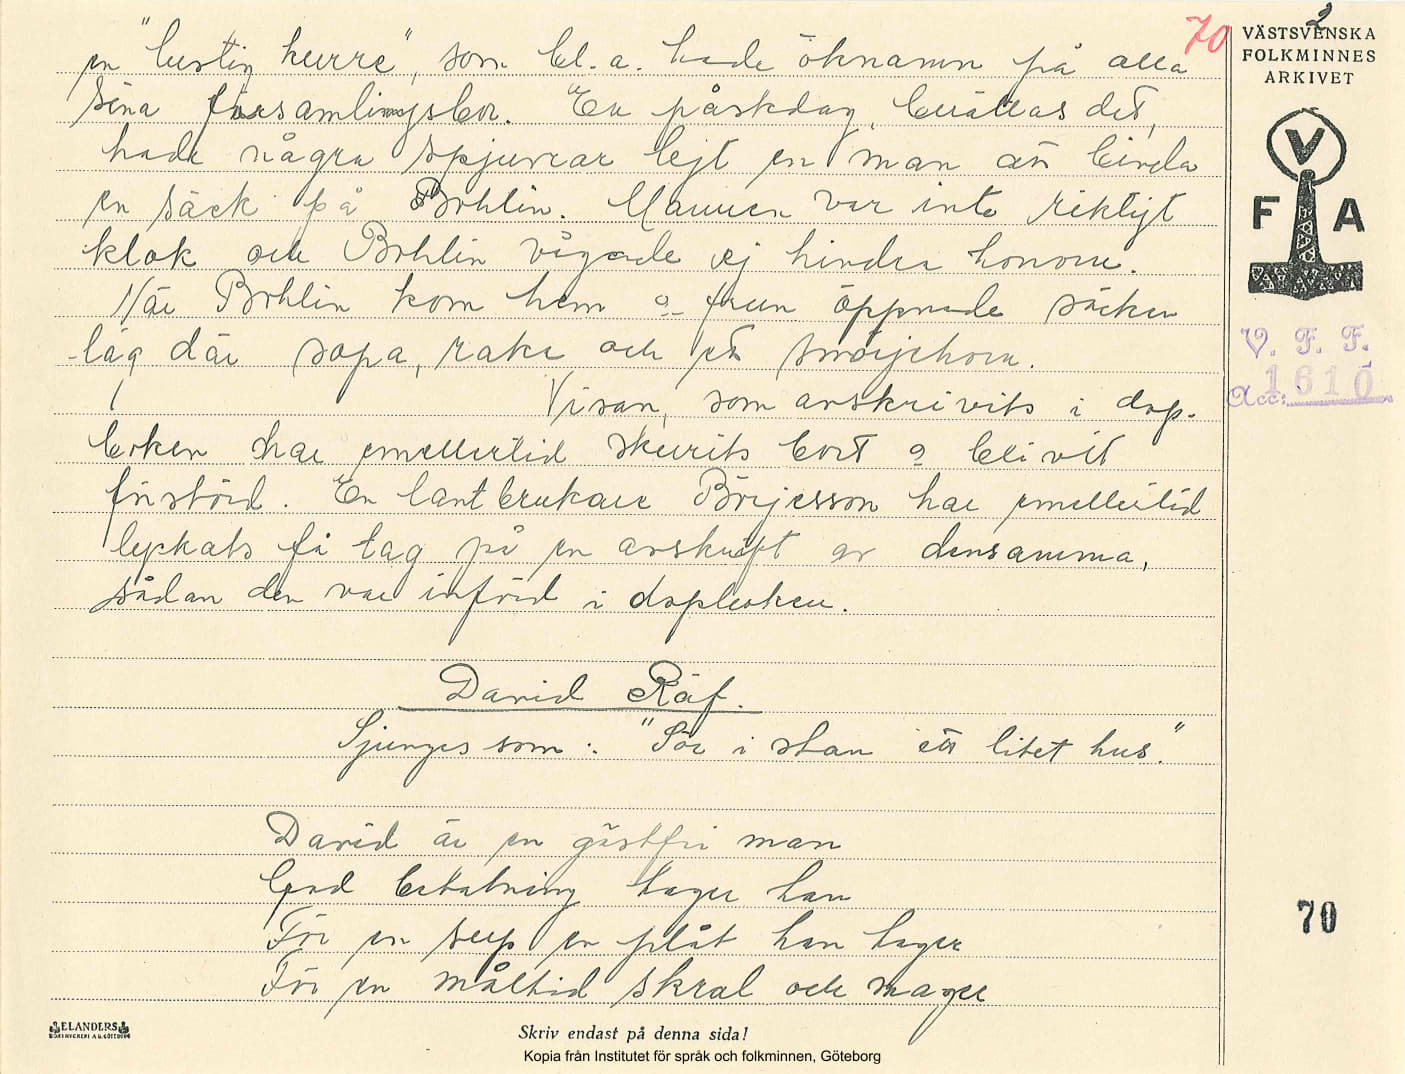 2
70
VÄSTSVENSKA
FOLKMINNES
ARKIVET
V
F A
V. F. F.
Acc: 1610
en "lustig kurre", som bl. a. hade öknamn på alla
sina församlingsbor. En påskdag, berättas det,
hade några spjuvrar lejt en man att binda
en säck på Bohlin. Mannen var inte riktigt
klok och Bohlin vågade ej hindra honom.
När Bohlin kom hem o frun öppnade säcken
låg där sopa, raka och ett smörjehorn.
Visan, som avskrivits i dop-
boken har emellertid skurits bort o blivit
förstörd. En lantbrukare Börjesson har emellertid
lyckats få tag på en avskrift av densamma,
sådan den var införd i dopboken.
David Räf.
Sjunges som: "Sör i stan ett litet hus."
David är en gästfri man
God betalning tager han
För en sup en plåt han tager
För en måltid skral och mager
70
ELANDERS
BOKTRYCKERI A.B. GÖTEBORG
Skriv endast på denna sida!
Kopia från Institutet för språk och folkminnen, Göteborg